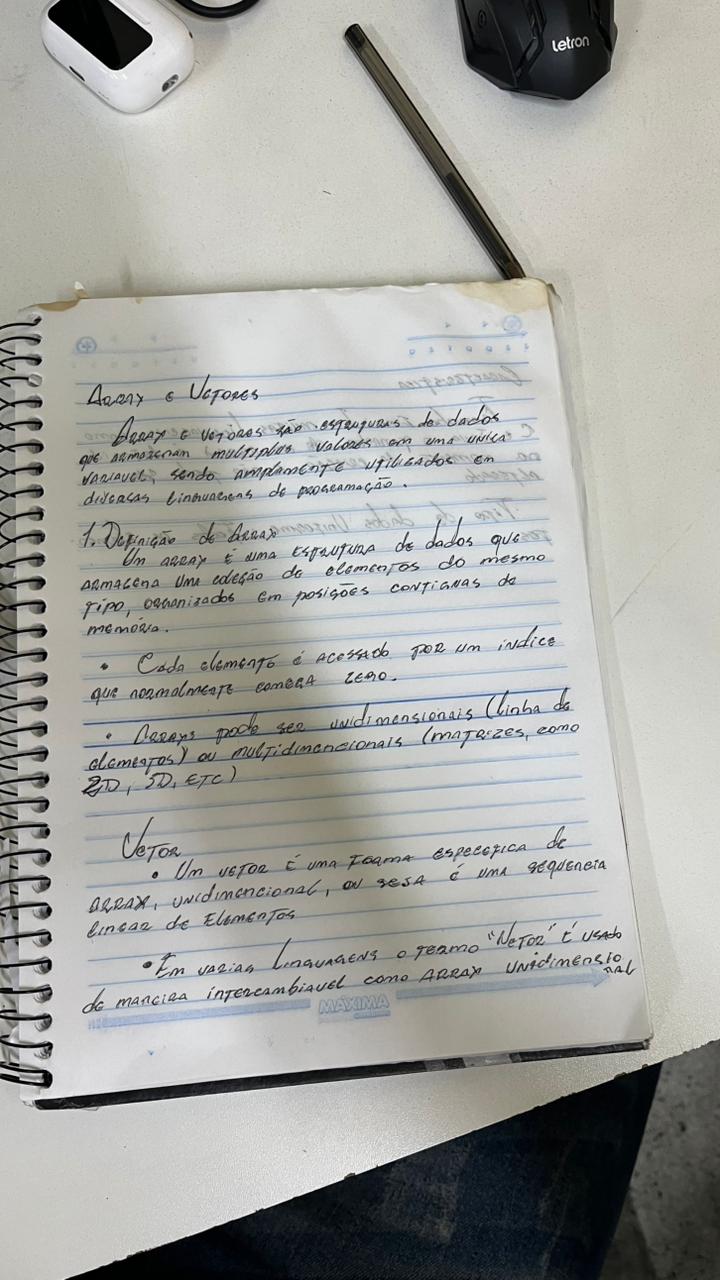 Letron
Array e Vetores
Array e vetores são estruturas de dados
que armazenam multiplas valores em uma unica
variavel, sendo amplamente utilizados em
diversas linguagens de programação.
1. Definição de Array
Um array é uma estrutura de dados que
armazena uma coleção de elementos do mesmo
tipo, organizados em posições contignas de
memória.
• Cada elemento é acessado por um indice
que normalmente começa zero.
• Arrays pode ser unidimensionais (linha de
elementos) ou multidimencionais (matrizes, como
2D, 3D, etc)
Vetor
• Um vetor é uma forma especefica de
array, unidimencional, ou seja é uma sequencia
linear de Elementos
• Em varias linguagens o termo "Vetor" é usado
de maneira intercambiavel como array unidimensio
nal
MÁXIMA